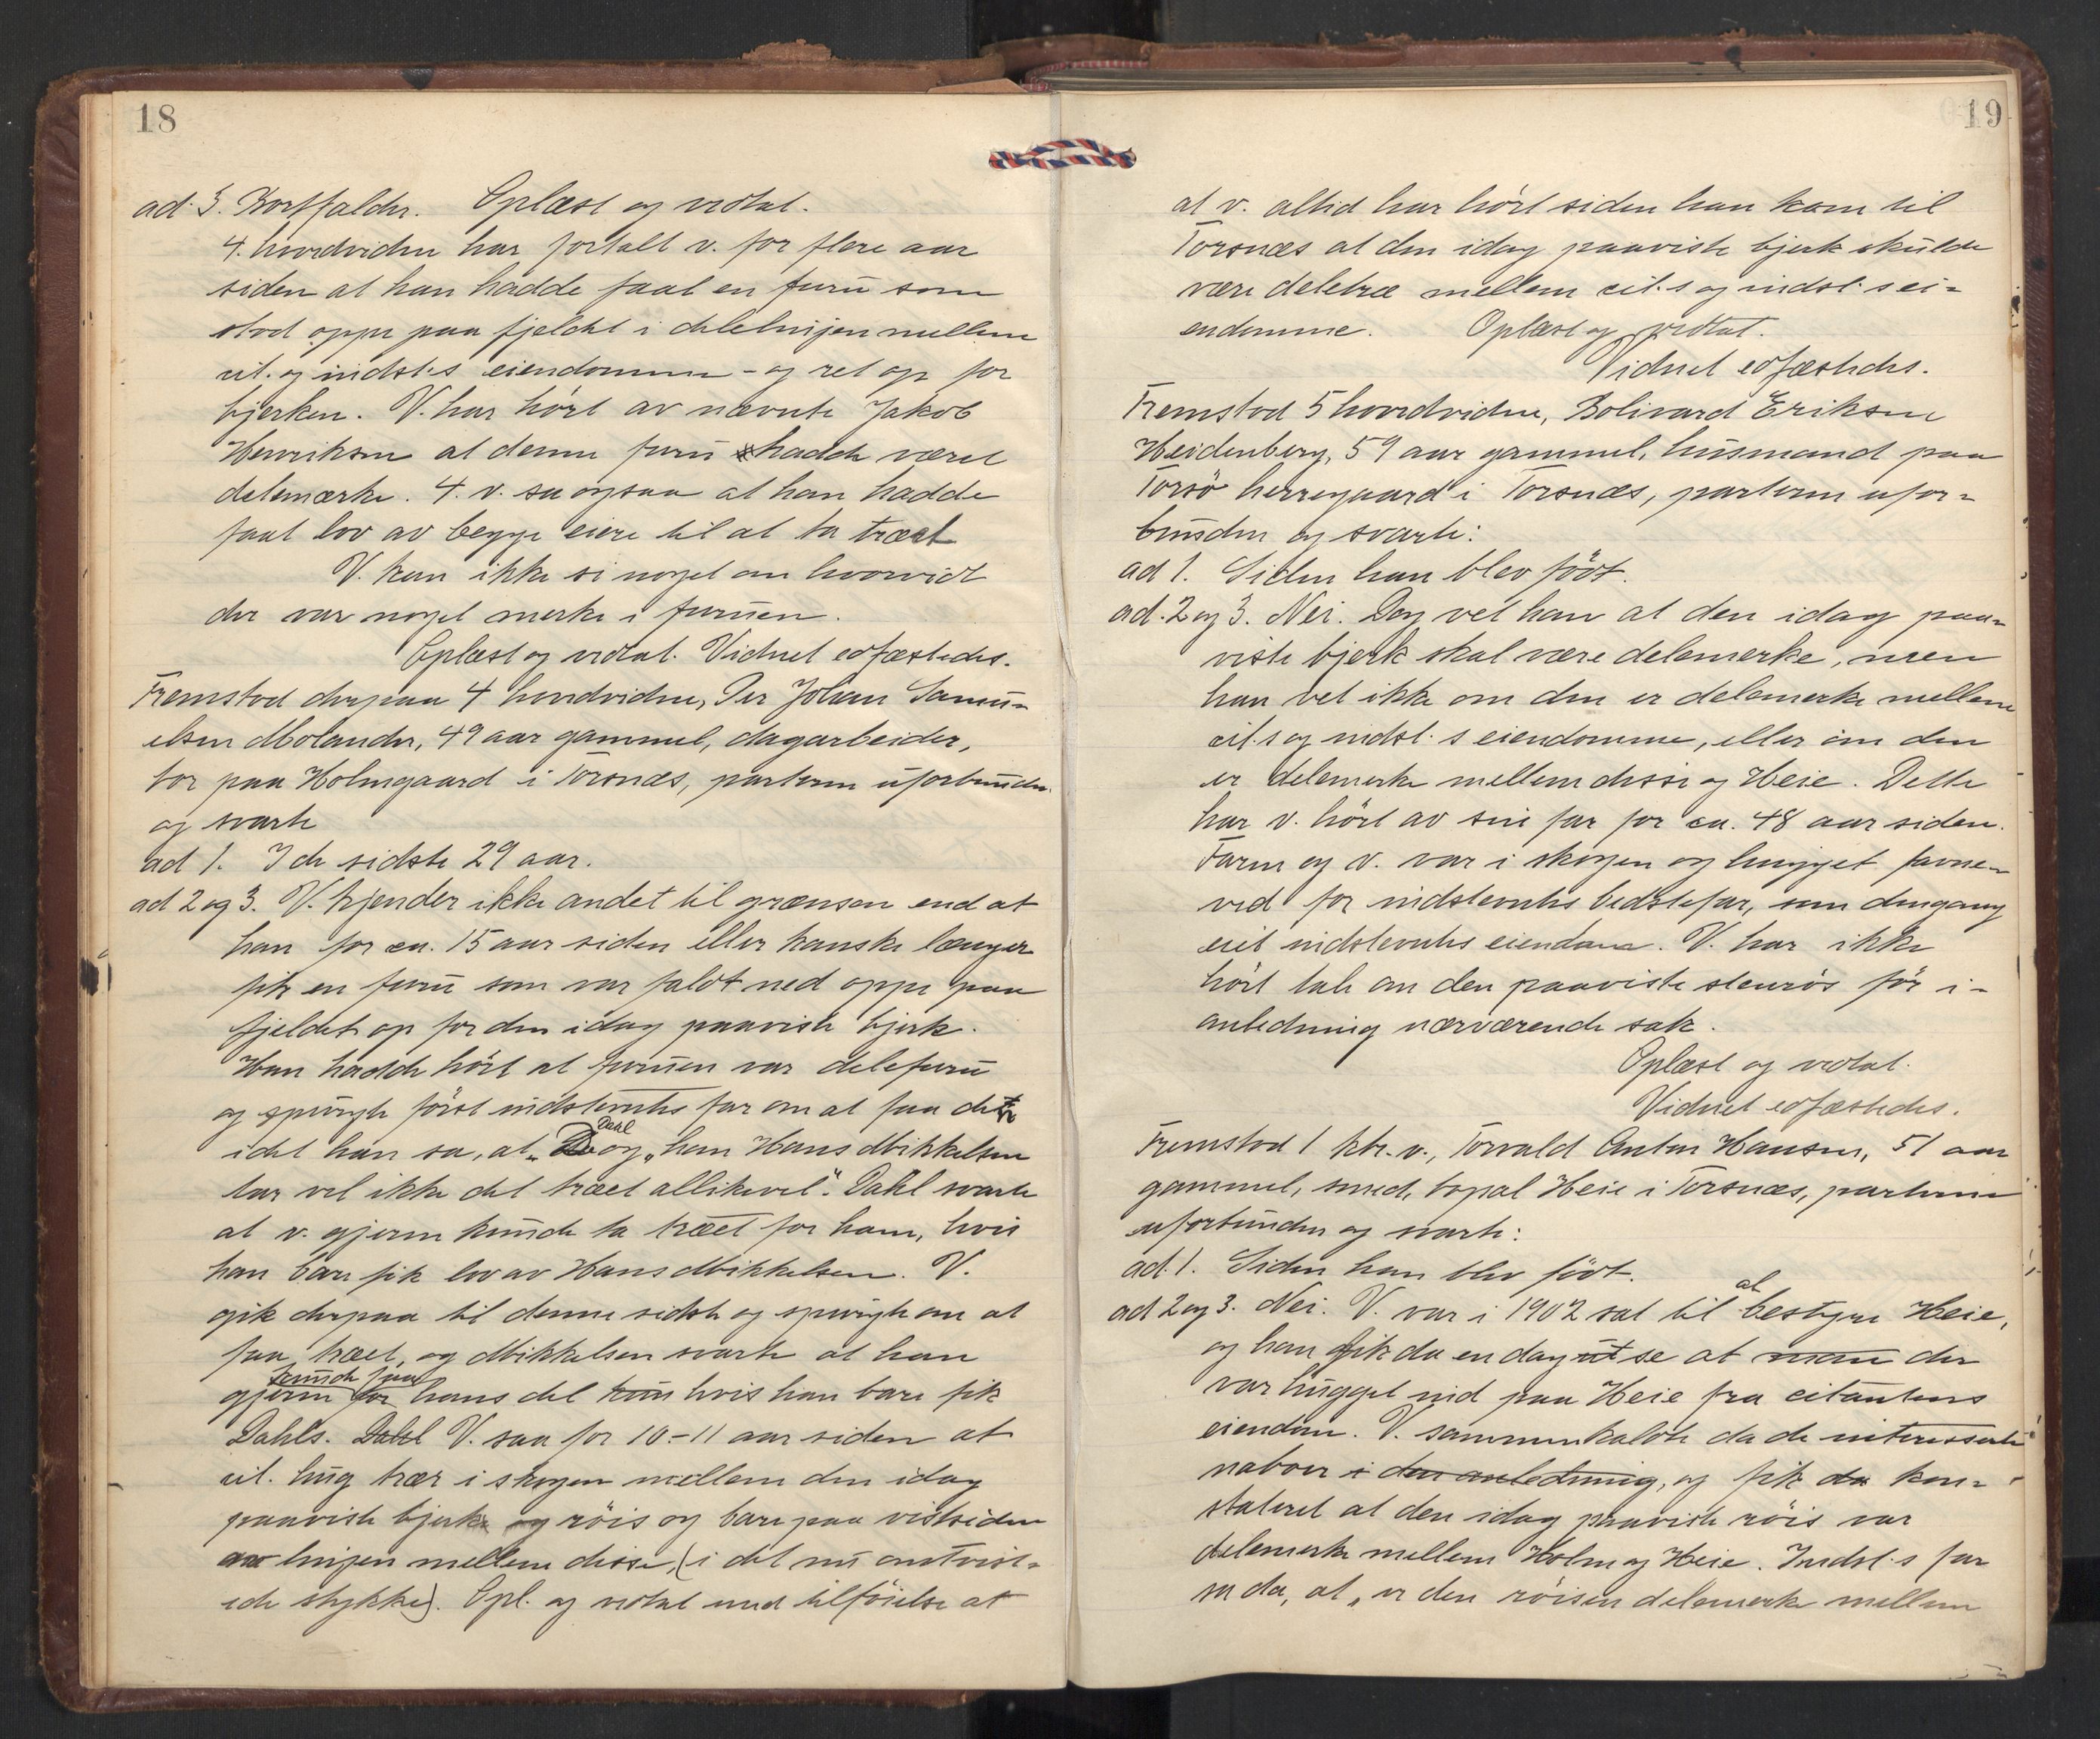 18
ad. 3. Bortfalder. Oplæst og vedtat.
4. hovedvidne har fortalt v. for flere aar
siden at han hadde faat en furu som
stod oppe paa fjeldet i delelinjen mellem
cit. og indst.s eiendomme - og ret op for
bjerken. V. har hört av nævnte Jakob
Henriksen at denne furu hadde været
delemærke. 4. v. sa ogsaa at han hadde
faat lov av begge eiere til at ta træet
V. kan ikke si noget om hvorvidt
der var noget merke i furuen.
Oplæst og vedtat. Vidnet edfæstedes.
Fremstod derpaa 4 hovedvidne, Per Johan Samu-
elsen Molander, 49 aar gammel, dagarbeider,
bor paa Holmgaard i Torsnæs, parterne uforbunden
og svarte
ad 1. I de sidste 29 aar.
ad 2 og 3. V. kjender ikke andet til grænsen end at
han for ca. 15 aar siden eller kanske længer
fik en furu som var faldt ned oppe paa
fjeldet op for den idag paaviste bjerk.
Han hadde hört at furuen var delefuru
og spurgte först indstevntes far om at faa det
idet han sa, at „Dahl og „han Hans Mikkelsen
tar vel ikke det træet allikevel". Dahl svarte
at v. gjerne kunde ta træet for ham, hvis
han bare fik lov av Hans Mikkelsen. V.
gik derpaa til denne sidste og spurgte om at
faa træet, og Mikkelsen svarte at han
kunde faa
gjerne for hans del hvis han bare fik
Dahls. Dahl V. saa for 10-11 aar siden at
cit. hug trær i skogen mellem den idag
paaviste bjerk og röis og bare paa vestsiden
av linjen mellem disse, (i det nu omtvist-
ede stykke). Opl. og vedtat med tilföielse at
19
at v. altid har hört siden han kom til
Torsnæs at den idag paaviste bjerk skulde
være deletræ mellem cit.s og indst.s ei-
endomme. Oplæst og vedtat.
Vidnet edfæstedes.
Fremstod 5 hovedvidne, Bolivard Eriksen
Heidenberg, 59 aar gammel, husmand paa
Torsö herregaard i Torsnæs, parterne ufor-
bunden og svarte:
ad 1. Siden han blev födt.
ad. 2 og 3. Nei. Dog vet han at den idag paa-
viste bjerk skal være delemerke, men
han vet ikke om den er delemerke mellem
cit.s og indst.s eiendomme, eller om den
er delemerke mellem disse og Heie. Dette
har v. hört av sin far for ca. 48 aar siden.
Faren og v. var i skogen og hugget favne-
ved for indstevntes bedstefar, som dengang
eiet indstevntes eiendom. V. har ikke
hört tale om den paaviste stenrös för i-
anledning nærværende sak.
Oplæst og vedtat.
Vidnet edfæstedes.
Fremstod 1 ktr. v., Torvald Anton Hansen, 51 aar
gammel, smed, bopæl Heie i Torsnæs, parterne
uforbunden og svarte:
ad. 1. Siden han blev födt.
ad 2 og 3. Nei. V. var i 1902 sat til at bestyre Heie,
og han fik da en dag se at man der
var hugget ind paa Heie fra citantens
eiendom. V. sammenkaldte da de interesserte
naboer i den anledning, og fik da kon-
stateret at den idag paaviste röis var
delemerke mellem Holm og Heie. Indst.s far
sa da, at „er den röisen delemerke mellem